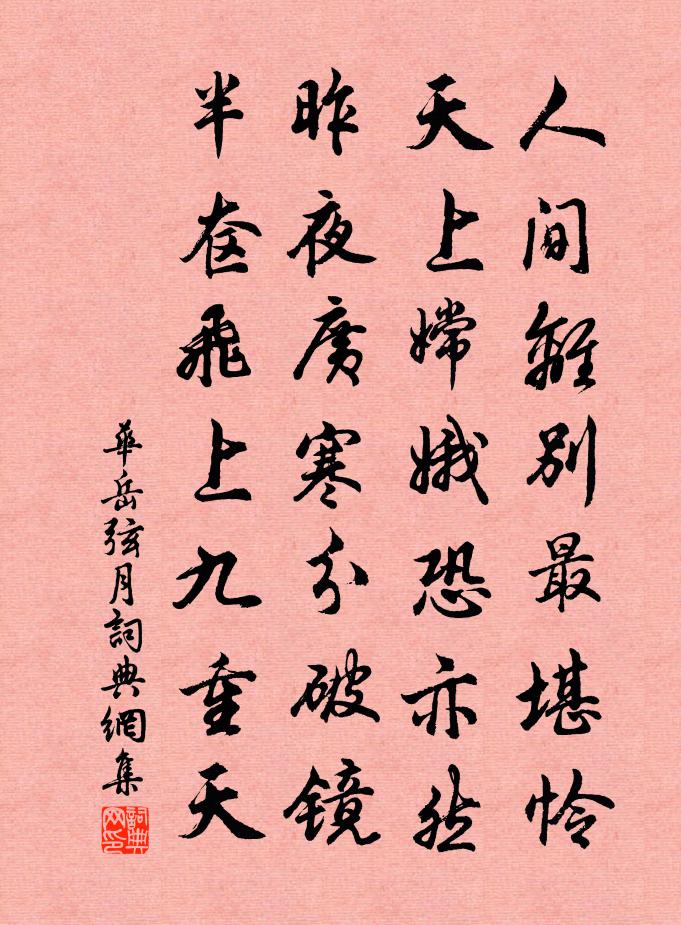 人間離別最堪怜
天上嫦娥恐亦然
昨夜廣寒分破镜
半奁飛上九重天
華岳弦月詞典網集
詞典网印